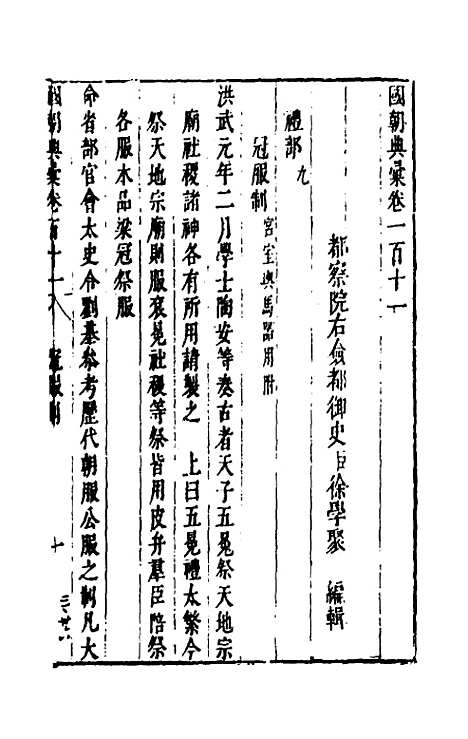 國朝典彙卷一百十一
都察院右僉都御史臣徐學聚 編輯
禮部 九
冠服制 宮室輿馬器用附
洪武元年二月學士陶安等奏古者天子五冕祭天地宗
廟社稷諸神各有所用請製之 上曰五冕禮太繁今
祭天地宗廟則服袞冕社稷等祭皆用皮弁羣臣陪祭
各服本品梁冠祭服
命省部官會太史令劉基參考歷代朝服公服之制凡大
國朝典彙卷百十一 冠服制 十